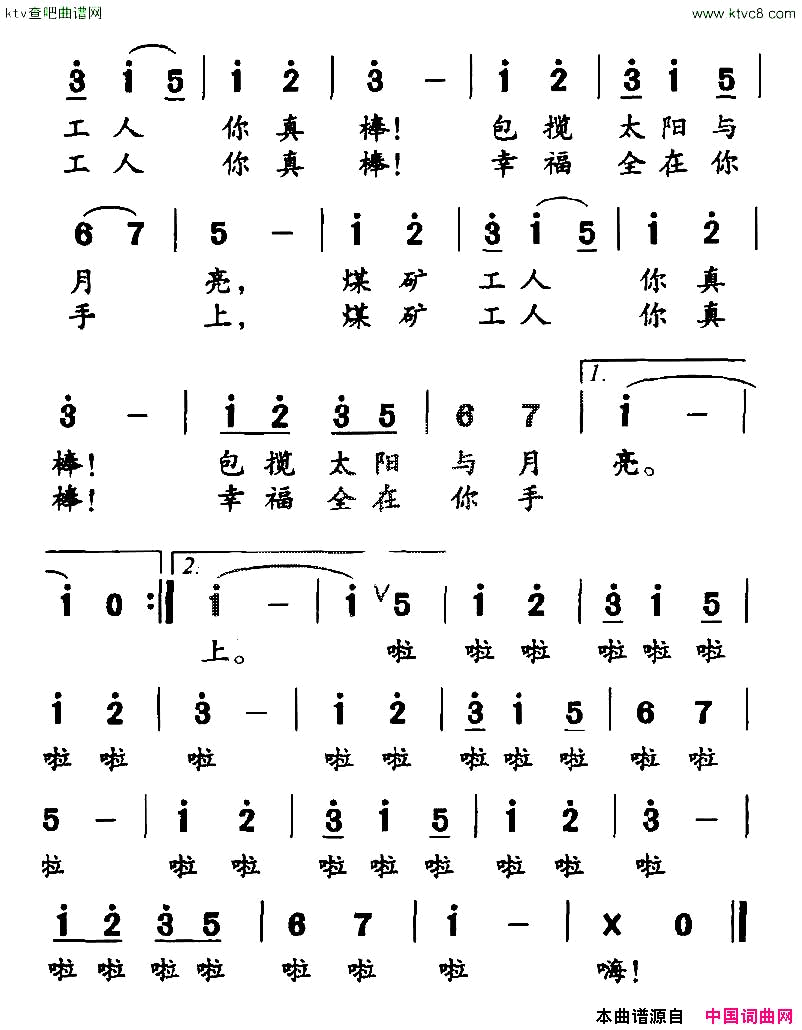 ktv查吧曲谱网 www.ktvc8.com
3 1 5 | 1 2 | 3 - | 1 2 | 3 1 5 |
工人 你真 棒! 包揽 太阳与
工人 你真 棒! 幸福 全在你
6 7 | 5 - | 1 2 | 3 1 5 | 1 2 |
月 亮, 煤矿 工人 你真
手 上, 煤矿 工人 你真
1.
3 - | 1 2 3 5 | 6 7 | 1 - |
棒! 包揽太阳 与月 亮。
棒! 幸福全在 你手
2.
1 0 :| 1 - | 1 V 5 | 1 2 | 3 1 5 |
上。 啦 啦啦 啦啦啦
1 2 | 3 - | 1 2 | 3 1 5 | 6 7 |
啦啦 啦 啦啦 啦啦啦 啦啦
5 - | 1 2 | 3 1 5 | 1 2 | 3 - |
啦 啦啦 啦啦啦 啦啦 啦
1 2 3 5 | 6 7 | 1 - | X 0 ‖
啦啦啦啦 啦啦 啦 嗨!
本曲谱源自 中国词曲网